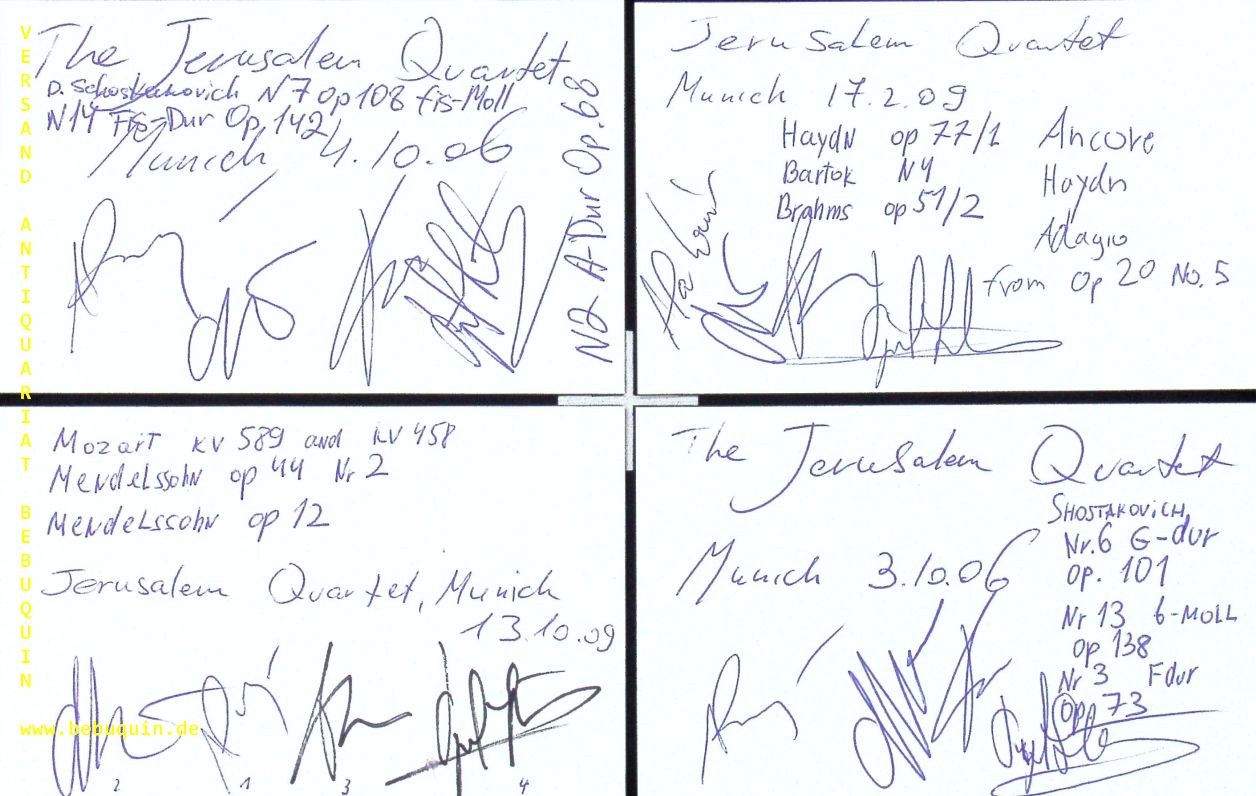 The Jerusalem Quartet
D. Schostakovich N7 op108 fis-Moll
N14 Fis-Dur Op,142
N2 A-Dur Op.68
Munich 4.10.06
Jerusalem Quartet
Munich 17.2.09
Haydn op 77/1
Bartok N4
Brahms op 51/2
Ancore
Haydn
Adagio
from Op 20 No. 5
Mozart KV 589 and KV 458
Mendelssohn op 44 Nr 2
Mendelssohn op 12
Jerusalem Quartet, Munich
13.10.09
2 1 3 4
The Jerusalem Quartet
Munich 3.10.06
SHOSTAKOViCH,
Nr.6 G-dur
Op. 101
Nr 13 b-MOLL
Op 138
Nr 3 Fdur
Op 73
VERSAND ANTIQUARIAT BEBUQUIN
www.bebuquin.de